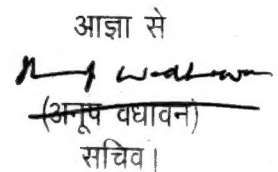 आज्ञा से
(अनूप वधावन)
सचिव।